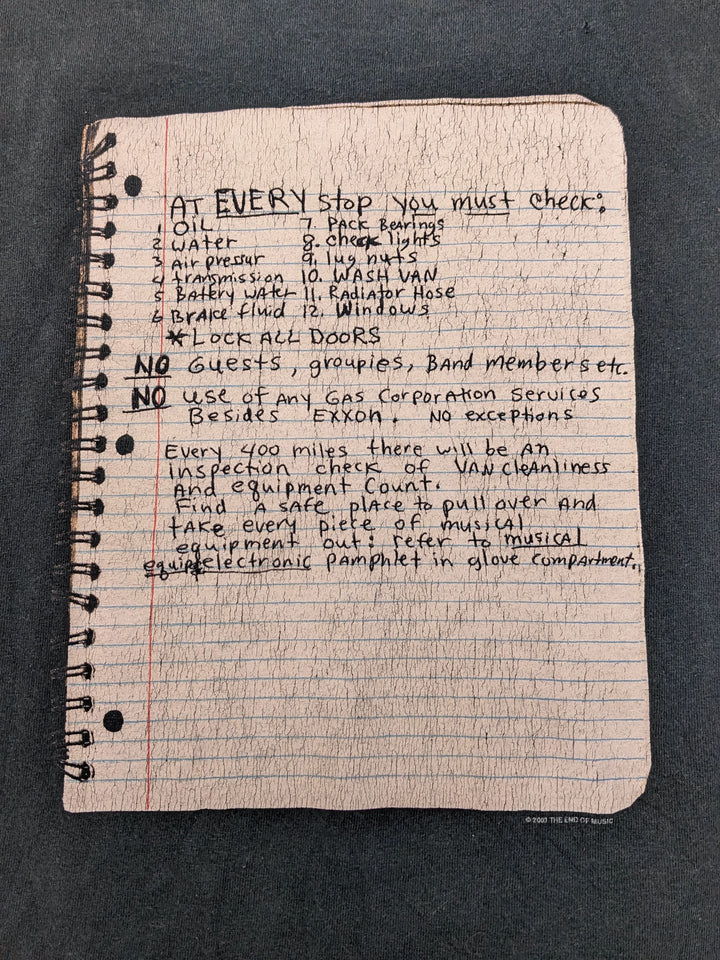 AT EVERY stop you must check:
1 OIL 7. PACK BeARings
2 water 8. check lights
3 Air pressur 9. lug nuts
4 transmission 10. WASH VAN
5 Battery WAter 11. RADiator Hose
6 BrAke fluid 12. Windows
* LOCK ALL DOORS
NO Guests, groupies, BAnd members etc.
NO use of Any GAS Corporation Services
Besides EXXON. NO exceptions
Every 400 miles there will be An
inspection check of VAN cleAnliness
And equipment Count.
Find A SAfe plAce to pull over And
tAke every piece of musicAl
equipment out: refer to musicAl
equip electronic pAmphlet in glove compArtment.
© 2003 THE END OF MUSIC